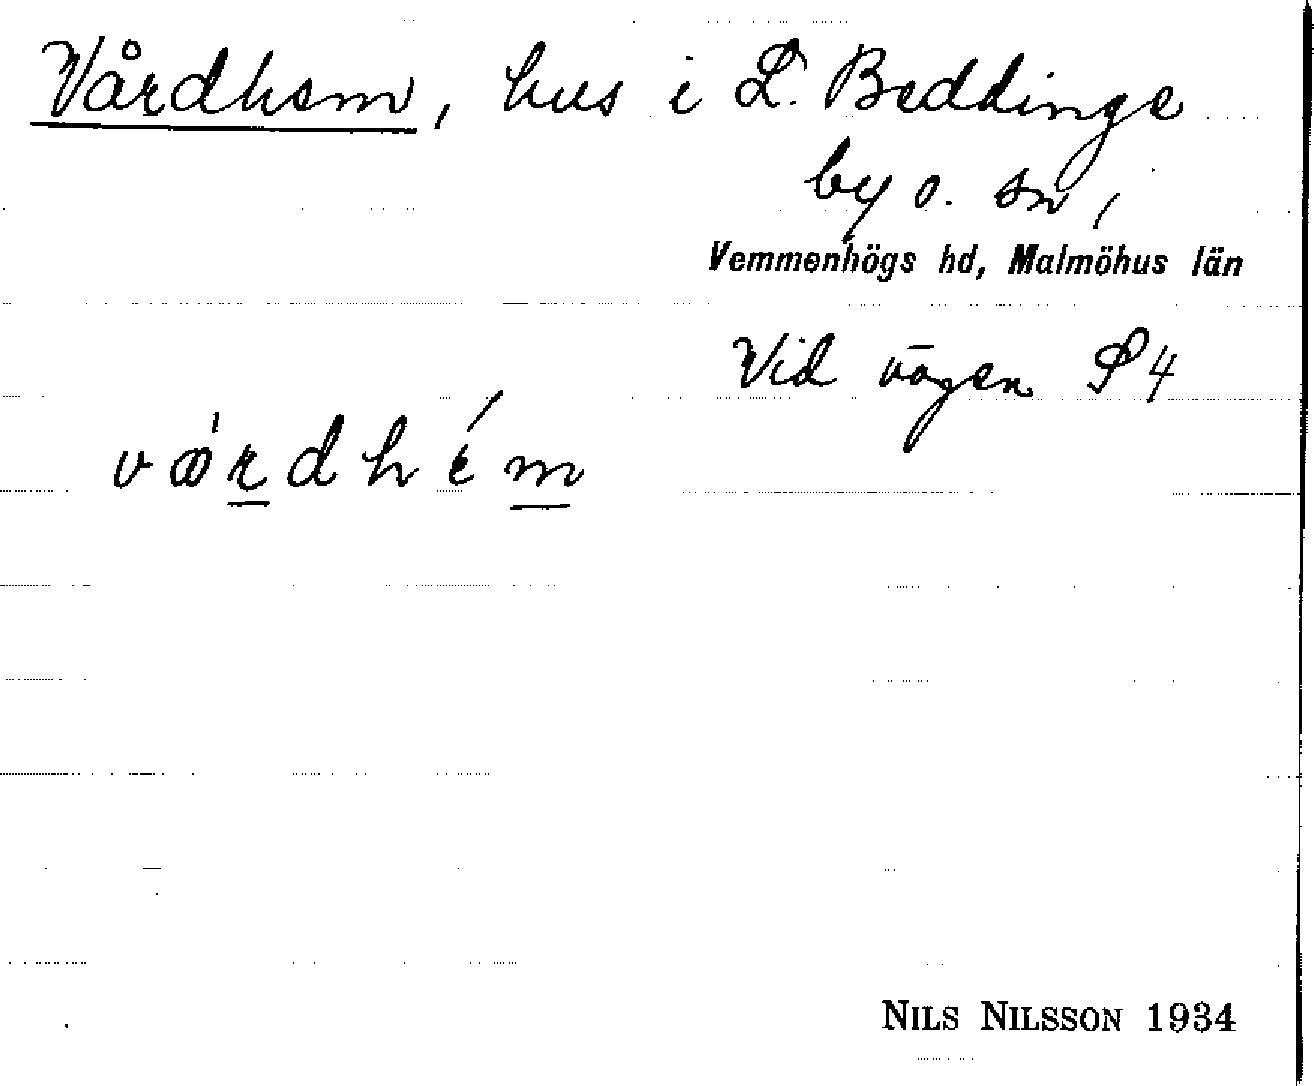 Vårdhem, hus i L. Beddinge
by o. sn,
Vemmenhögs hd, Malmöhus län
Vid vägen S 4
NILS NILSSON 1934